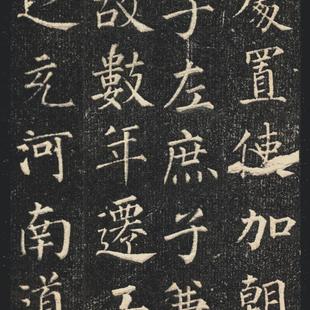 處置使加朝
子左庶子兼
故數年遷
充河南道